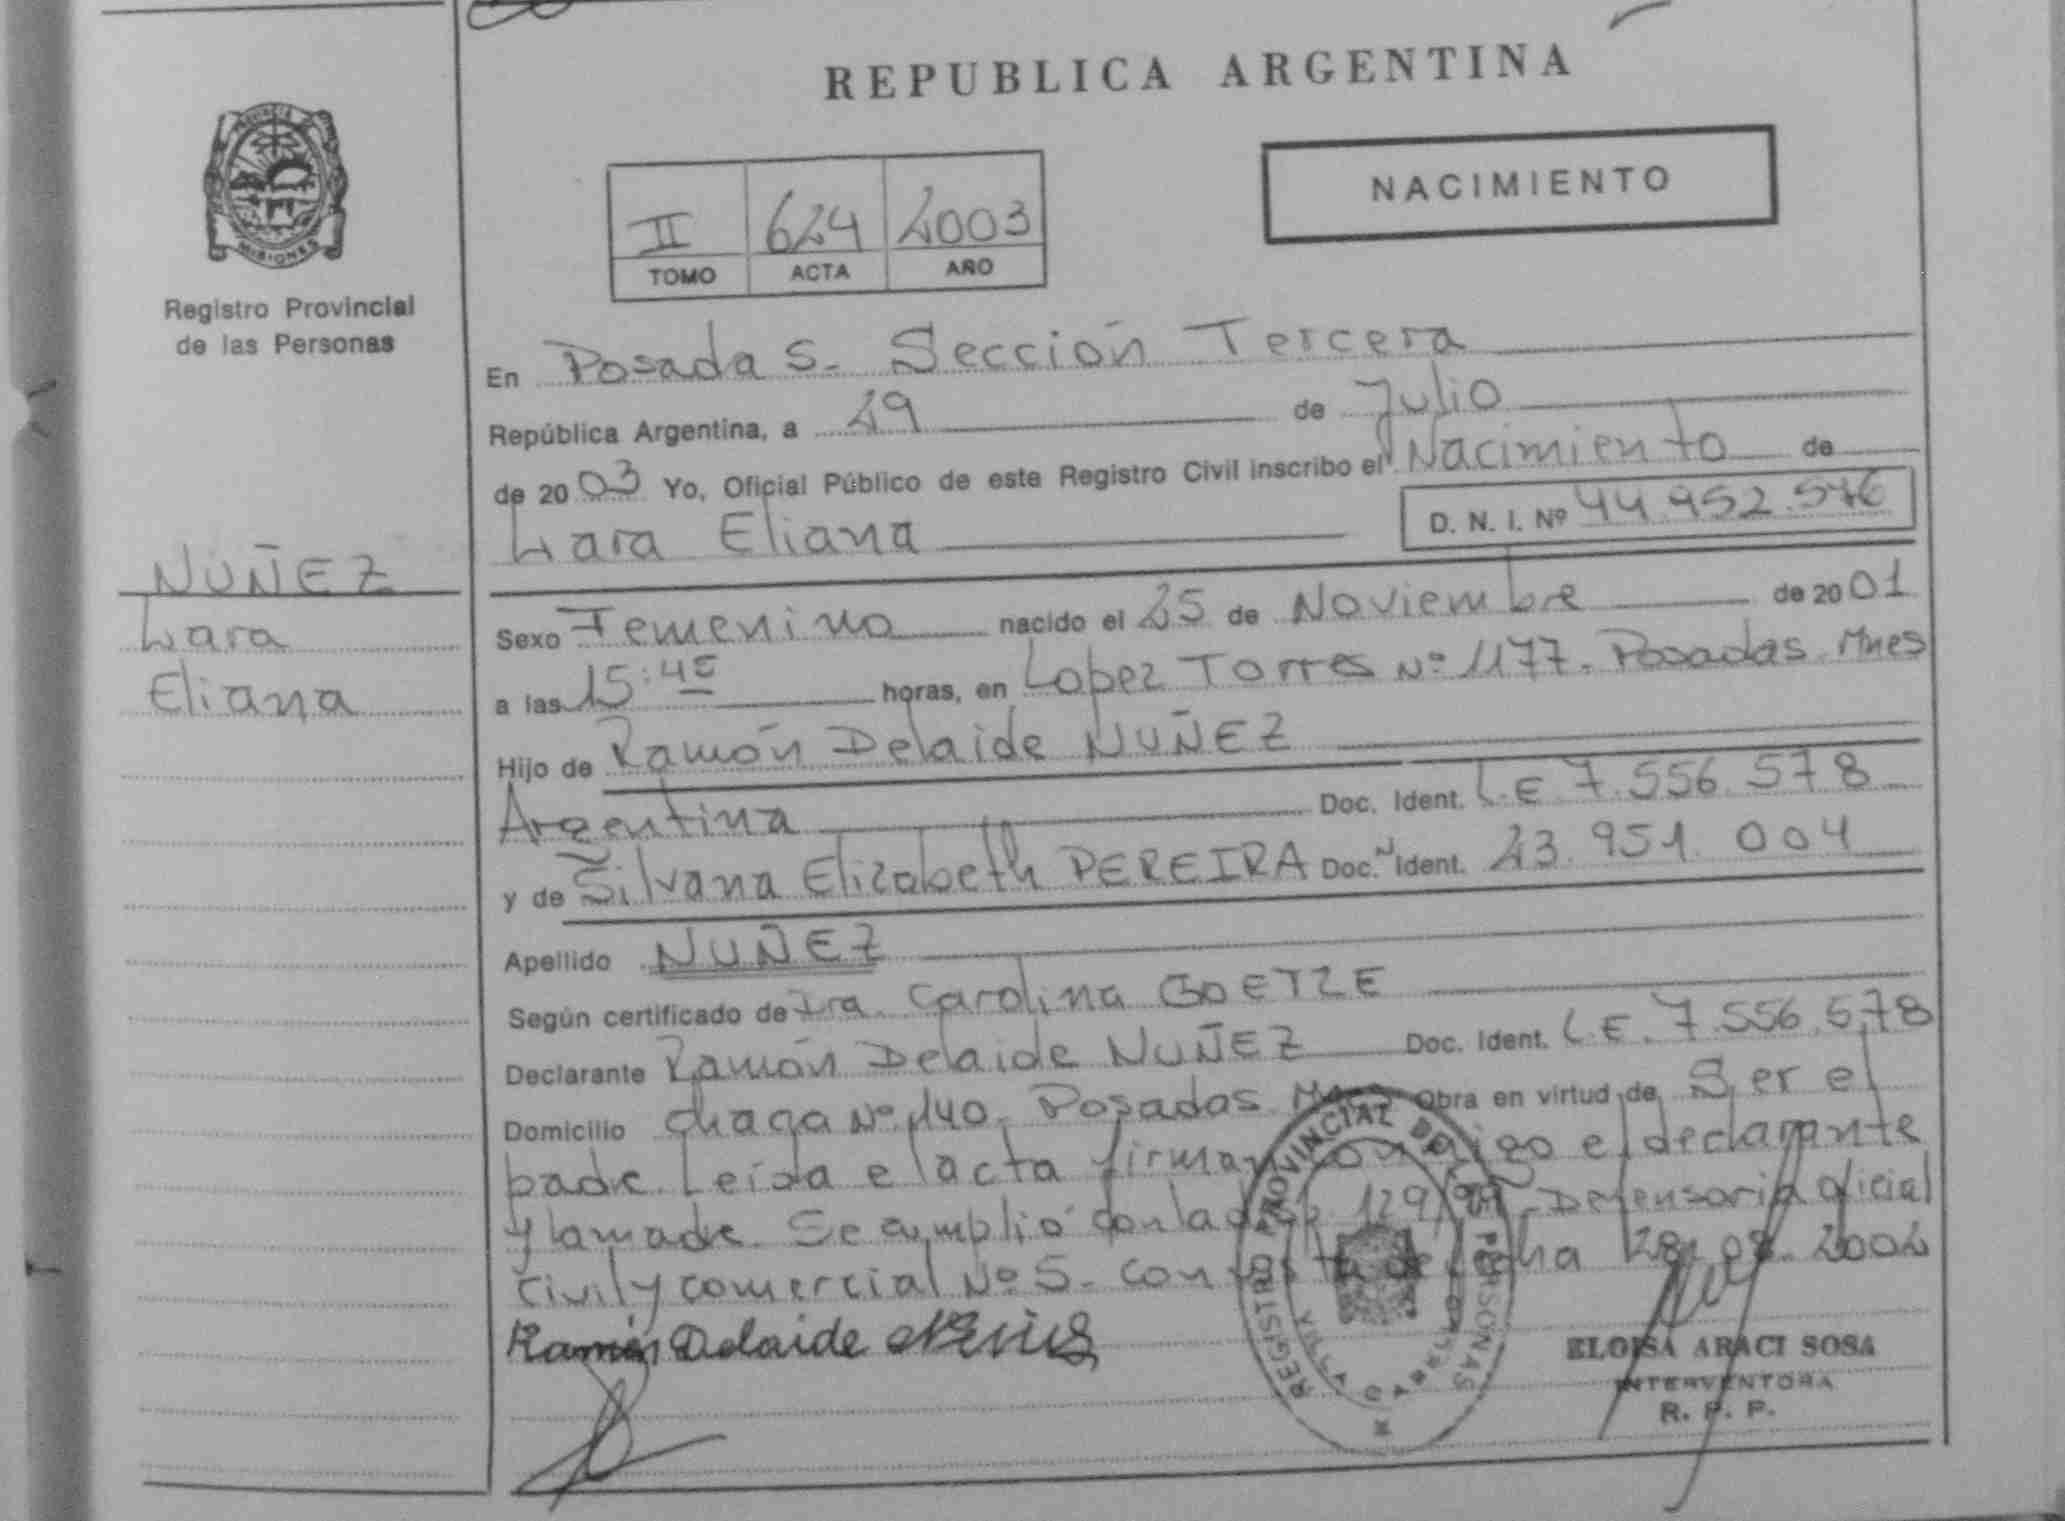 REPUBLICA ARGENTINA
NACIMIENTO
II 624 2003
TOMO ACTA AÑO
PROVINCIA DE
MISIONES
Registro Provincial
de las Personas
NUÑEZ
Lara
Eliana
En Posadas - Sección Tercera
República Argentina, a 29 de Julio
de 2003 Yo, Oficial Público de este Registro Civil inscribo el Nacimiento de
Lara Eliana D. N. I. Nº 44.952.576
Sexo Femenino nacido el 25 de Noviembre de 2001
a las 15:45 horas, en Lopez Torres Nº 1177. Posadas. Mnes
Hijo de Ramón Delaide NUÑEZ
Argentina Doc. Ident. L.E 7.556.578
y de Silvana Elizabeth PEREIRA Doc. Ident. 23.951.004
Apellido NUÑEZ
Según certificado de Dra. Carolina GOETZE
Declarante Ramón Delaide NUÑEZ Doc. Ident. L.E. 7.556.578
Domicilio chaga Nº 140. Posadas Mnes Obra en virtud de Ser el
padre. Leída el acta firman conmigo el declarante
y la madre. Se cumplió con la 129/99 - Defensoria oficial
civil y comercial Nº 5. con de fecha 28. 2002
Ramón Delaide
REGISTRO PROVINCIAL DE LAS PERSONAS
ELOISA ARACI SOSA
INTERVENTORA
R. P. P.